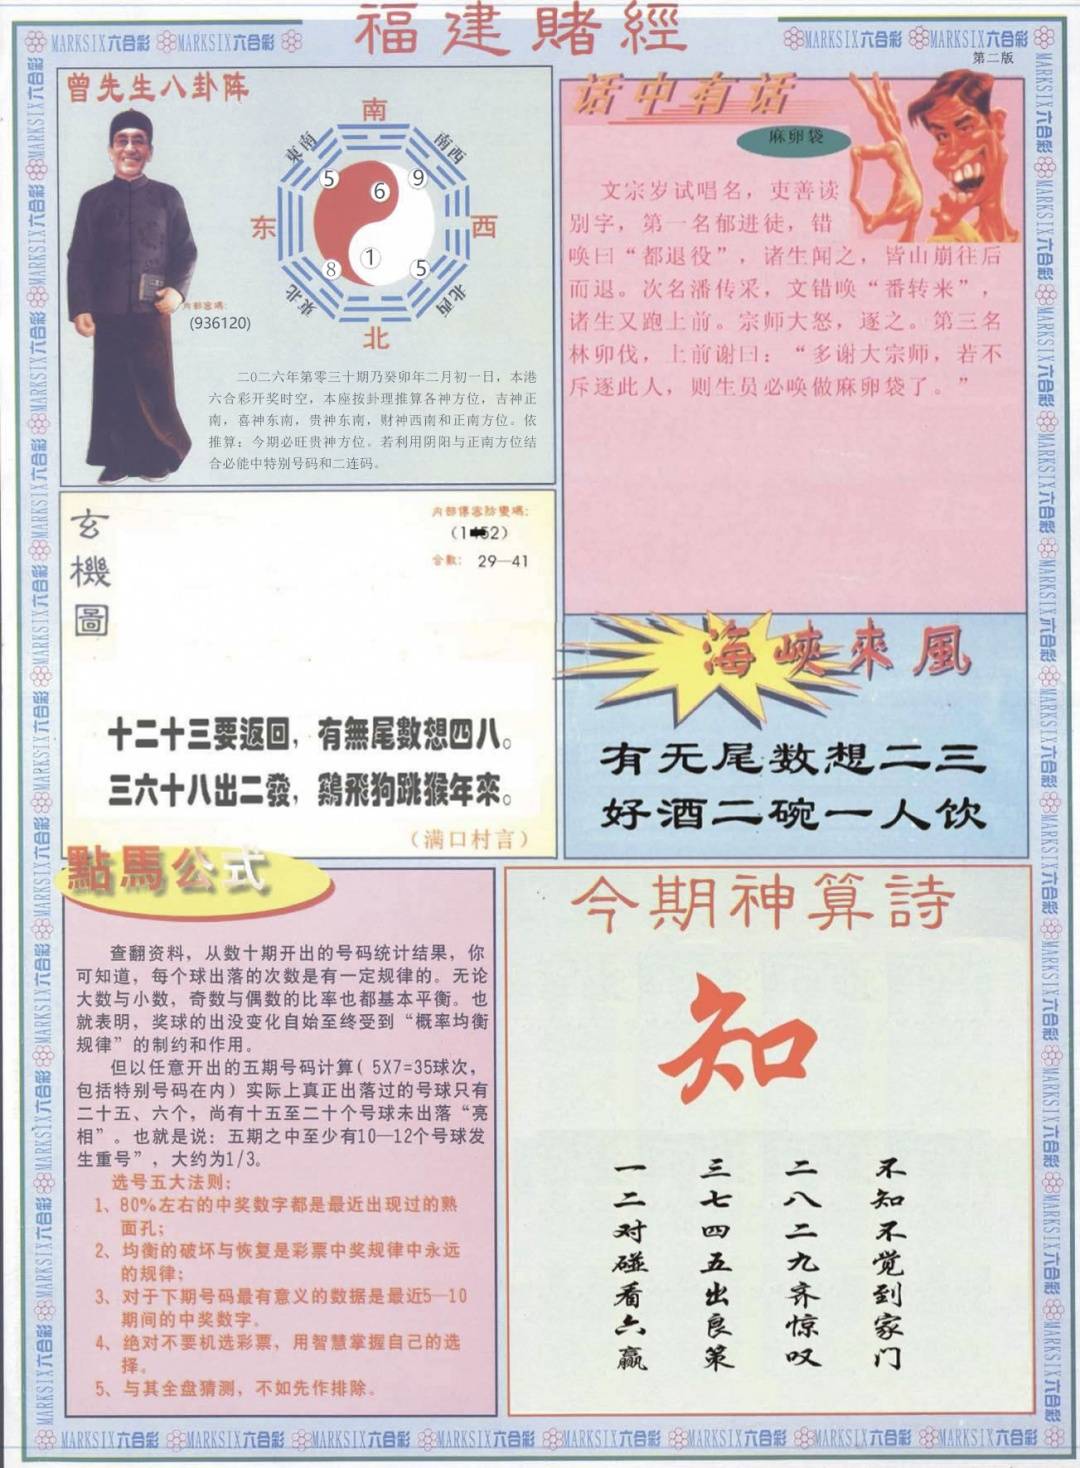 福建賭經
MARKSIX六合彩 MARKSIX六合彩
MARKSIX六合彩 MARKSIX六合彩
第二版
曾先生八卦阵
南
東南
南西
5
6
9
东
西
8
1
5
東北
北西
北
内部密碼:
(936120)
二0二六年第零三十期乃癸卯年二月初一日，本港
六合彩开奖时空，本座按卦理推算各神方位，吉神正
南，喜神东南，贵神东南，财神西南和正南方位。依
推算；今期必旺贵神方位。若利用阴阳与正南方位结
合必能中特别号码和二连码。
话中有话
麻卵袋
文宗岁试唱名，吏善读
别字，第一名郁进徒，错
唤曰“都退役”，诸生闻之，皆山崩往后
而退。次名潘传采，文错唤“番转来”，
诸生又跑上前。宗师大怒，逐之。第三名
林卯伐，上前谢曰：“多谢大宗师，若不
斥逐此人，则生员必唤做麻卵袋了。”
玄機圖
内部傳密防變碼:
合數: 29—41
十二十三要返回，有無尾數想四八。
三六十八出二發，鷄飛狗跳猴年來。
（满口村言）
海峽來風
有无尾数想二三
好酒二碗一人饮
點馬公式
查翻资料，从数十期开出的号码统计结果，你
可知道，每个球出落的次数是有一定规律的。无论
大数与小数，奇数与偶数的比率也都基本平衡。也
就表明，奖球的出没变化自始至终受到“概率均衡
规律”的制约和作用。
但以任意开出的五期号码计算（5X7=35球次，
包括特别号码在内）实际上真正出落过的号球只有
二十五、六个，尚有十五至二十个号球未出落“亮
相”。也就是说：五期之中至少有10—12个号球发
生重号”，大约为1/3。
选号五大法则：
1、80%左右的中奖数字都是最近出现过的熟
面孔；
2、均衡的破坏与恢复是彩票中奖规律中永远
的规律；
3、对于下期号码最有意义的数据是最近5—10
期间的中奖数字。
4、绝对不要机选彩票，用智慧掌握自己的选
择。
5、与其全盘猜测，不如先作排除。
今期神算詩
知
不知不觉到家门
二八二九齐惊叹
三七四五出良策
一二对碰看六赢
MARKSIX六合彩 MARKSIX六合彩 MARKSIX六合彩 MARKSIX六合彩 MARKSIX六合彩 MARKSIX六合彩 MARKSIX六合彩 MARKSIX六合彩